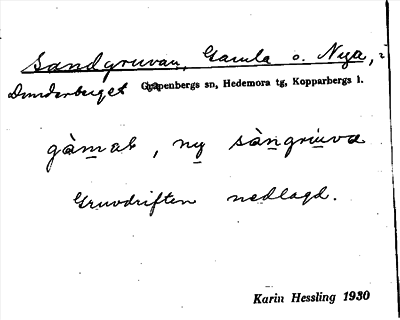 Sandgruvan, Gamla o. Nya, i
Dunderberget Garpenbergs sn, Hedemora tg, Kopparbergs l.
gàmaḷ, ny sàngruva
Gruvdriften nedlagd.
Karin Hessling 1930